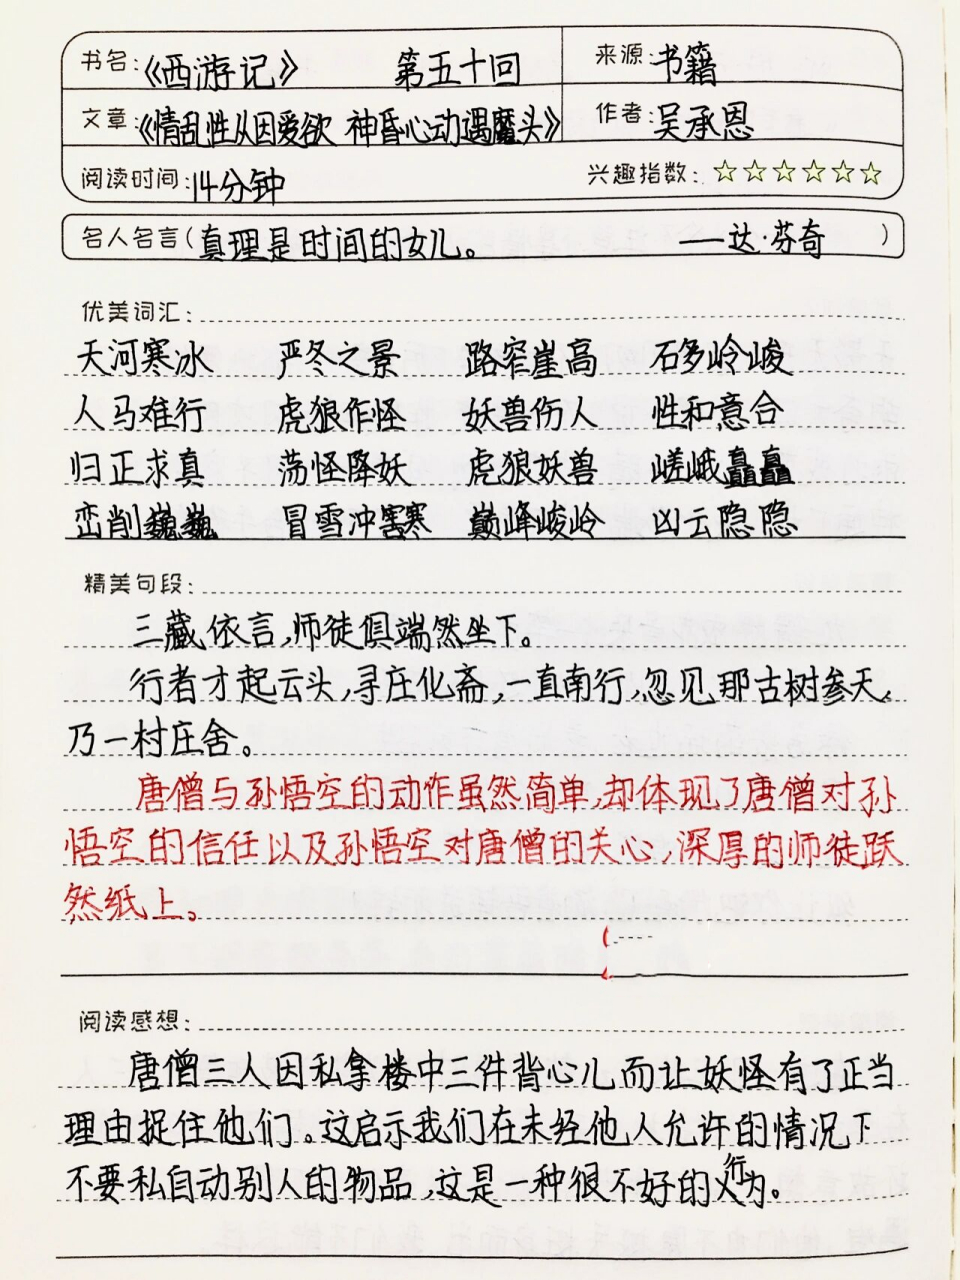 书名:《西游记》 第五十回 来源:书籍
文章:《情乱性从因爱欲 神昏心动遇魔头》 作者:吴承恩
阅读时间:14分钟 兴趣指数:☆☆☆☆☆☆
名人名言(真理是时间的女儿。 ——达·芬奇)
优美词汇:
天河寒冰 严冬之景 路窄崖高 石多岭峻
人马难行 虎狼作怪 妖兽伤人 性和意合
归正求真 荡怪降妖 虎狼妖兽 嵯峨矗矗
峦削巍巍 冒雪冲寒 巅峰峻岭 凶云隐隐
精美句段:
三藏依言,师徒俱端然坐下。
行者才起云头,寻庄化斋,一直南行,忽见那古树参天,
乃一村庄舍。
唐僧与孙悟空的动作虽然简单,却体现了唐僧对孙
悟空的信任以及孙悟空对唐僧的关心,深厚的师徒跃
然纸上。
阅读感想:
唐僧三人因私拿楼中三件背心儿而让妖怪有了正当
理由捉住他们。这启示我们在未经他人允许的情况下
不要私自动别人的物品,这是一种很不好的行为。